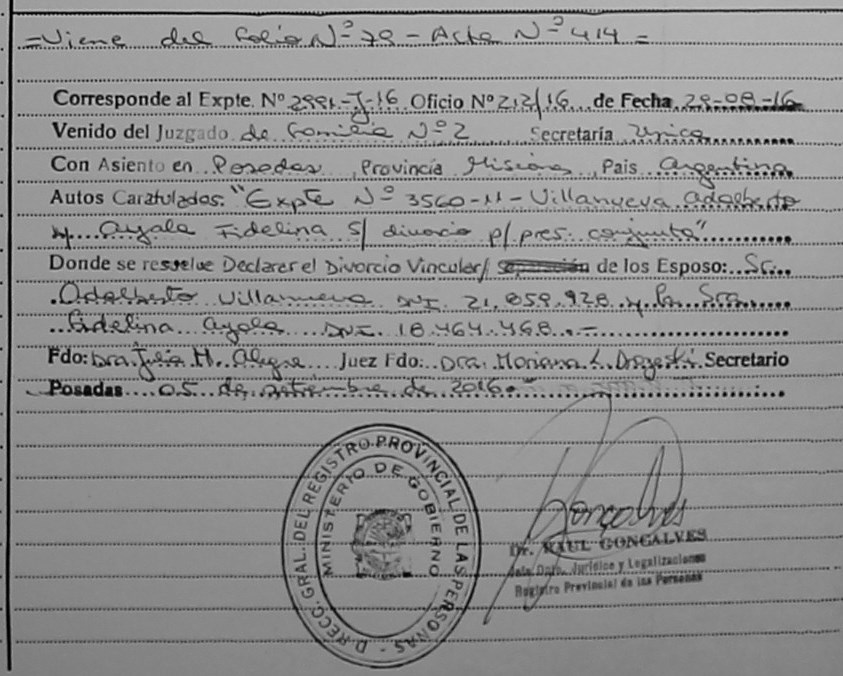 =Viene del Folio Nº 79 - Acta Nº 414=
Corresponde al Expte. Nº 2991-J-16 Oficio Nº 212/16 de Fecha 29-08-16
Venido del Juzgado de Familia Nº 2 Secretaría Unica
Con Asiento en Posadas, Provincia Misiones, Pais Argentina
Autos Caratulados: "Expte Nº 3560-11- Villanueva Adalberto
y Ayala Fidelina S/ divorcio p/ pres. conjunta"
Donde se resuelve Declarar el Divorcio Vincular/ separación de los Esposo: Sr.
Adalberto Villanueva DNI. 21.059.928 y la Sra.
Fidelina Ayala DNI. 18.464.468.-
Fdo: Dra Julia H. Alegre Juez Fdo: Dra. Mariana L. Secretario
Posadas 05 de setiembre de 2016.-
D.RECC. GRAL. DEL REGISTRO PROVINCIAL DE LAS PERSONAS -
MINISTERIO DE GOBIERNO
Goncalves
Dr. RAUL GONCALVES
Jefe Dpto. Jurídico y Legalizaciones
Registro Provincial de las Personas